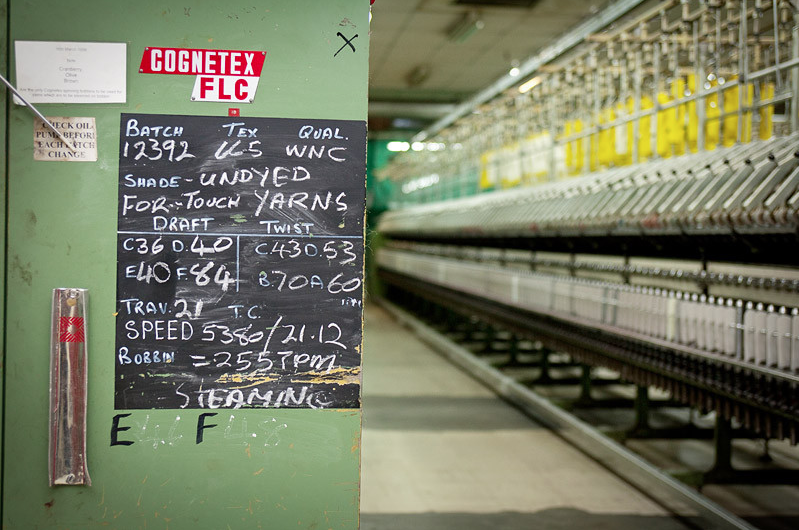 COGNETEX
FLC
CHECK OIL
PUMP BEFORE
EACH BATCH
CHANGE
BATCH TEX QUAL.
12392 WNC
SHADE - UNDYED
FOR - TOUCH YARNS
DRAFT TWIST
C36 D.40 C.43 D.53
E40 F.84 B70 A60
TRAV. 21 T.C.
SPEED 5380/21.12
BOBBIN = 255 TPM
STEAMING
E F